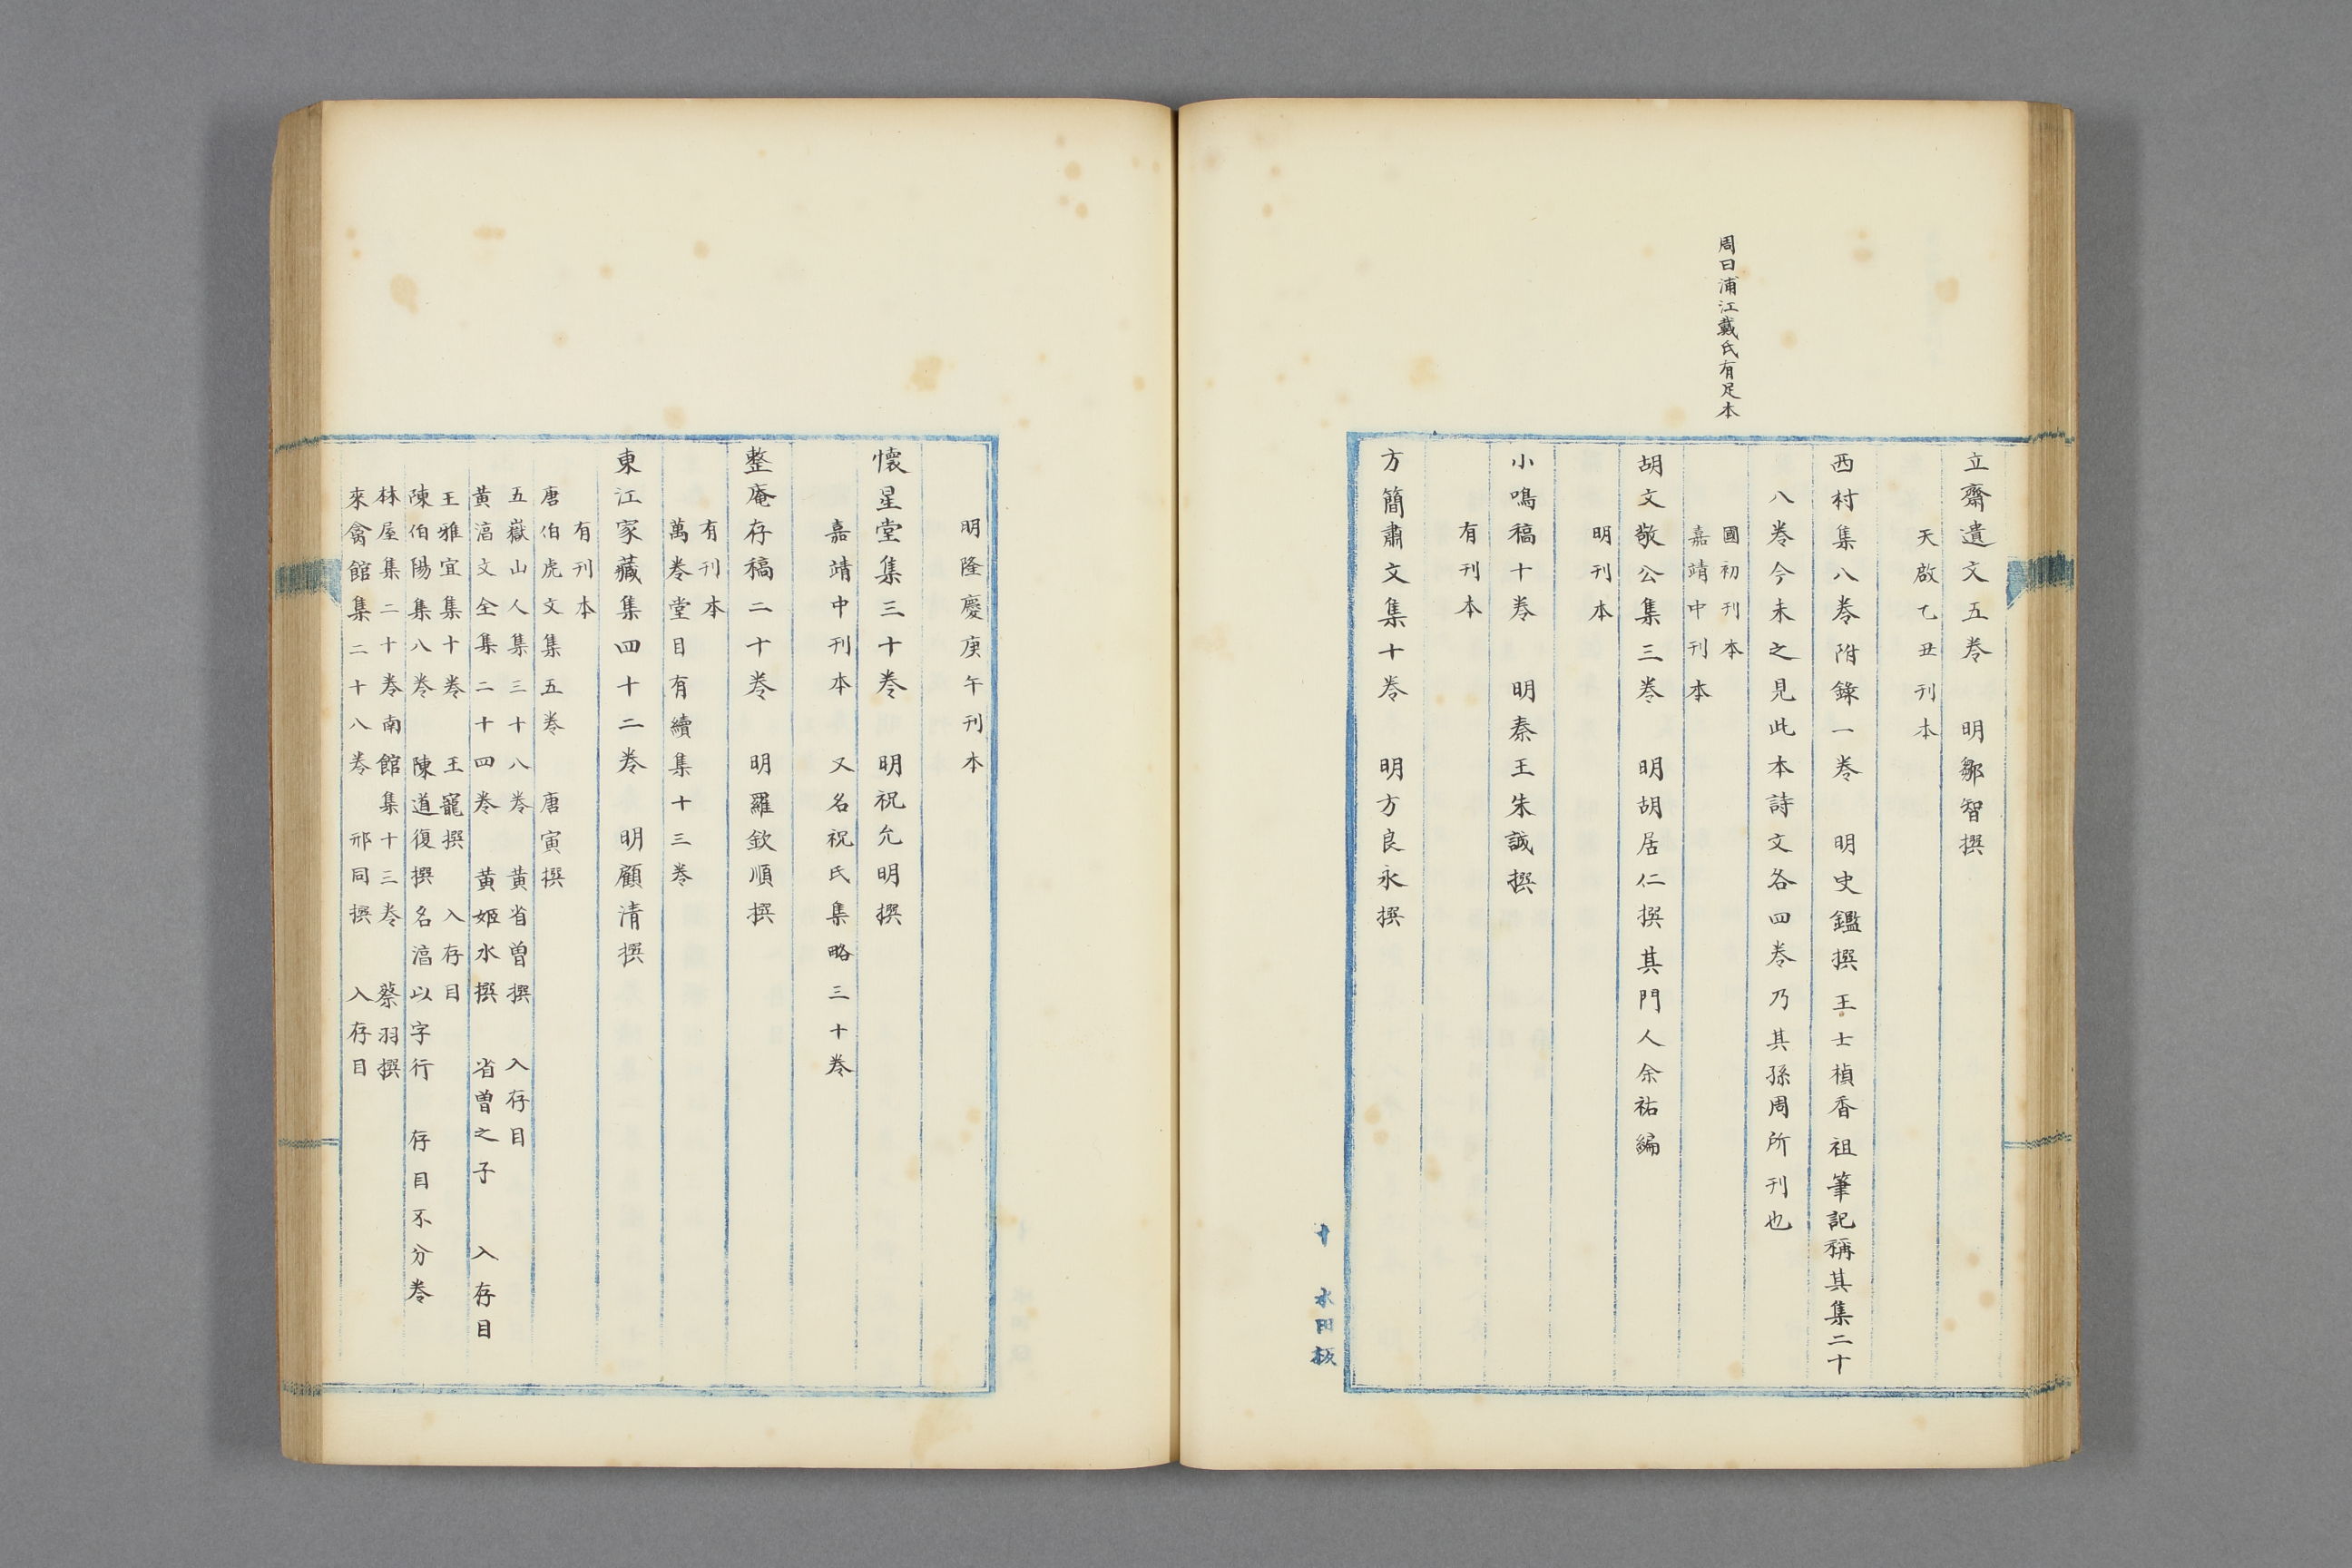 周曰浦江戴氏有足本
立齋遺文五卷　明鄒智撰
天啟乙丑刊本
西村集八卷附錄一卷　明史鑑撰王士楨香祖筆記稱其集二十
八卷今未之見此本詩文各四卷乃其孫周所刊也
國初刊本
嘉靖中刊本
胡文敬公集三卷　明胡居仁撰其門人余祐編
明刊本
小鳴稿十卷　明秦王朱誠撰
有刊本
方簡肅文集十卷　明方良永撰
十　水田板
明隆慶庚午刊本
懷星堂集三十卷　明祝允明撰
嘉靖中刊本　又名祝氏集略三十卷
整庵存稿二十卷　明羅欽順撰
有刊本
萬卷堂目有續集十三卷
東江家藏集四十二卷　明顧清撰
有刊本
唐伯虎文集五卷　唐寅撰
五嶽山人集三十八卷　黃省曾撰　入存目
黃滈文全集二十四卷　黃姬水撰　省曾之子　入存目
王雅宜集十卷　王寵撰　入存目
陳伯陽集八卷　陳道復撰名滈以字行　存目不分卷
林屋集二十卷南館集十三卷　蔡羽撰
來禽館集二十八卷　邢同撰　入存目